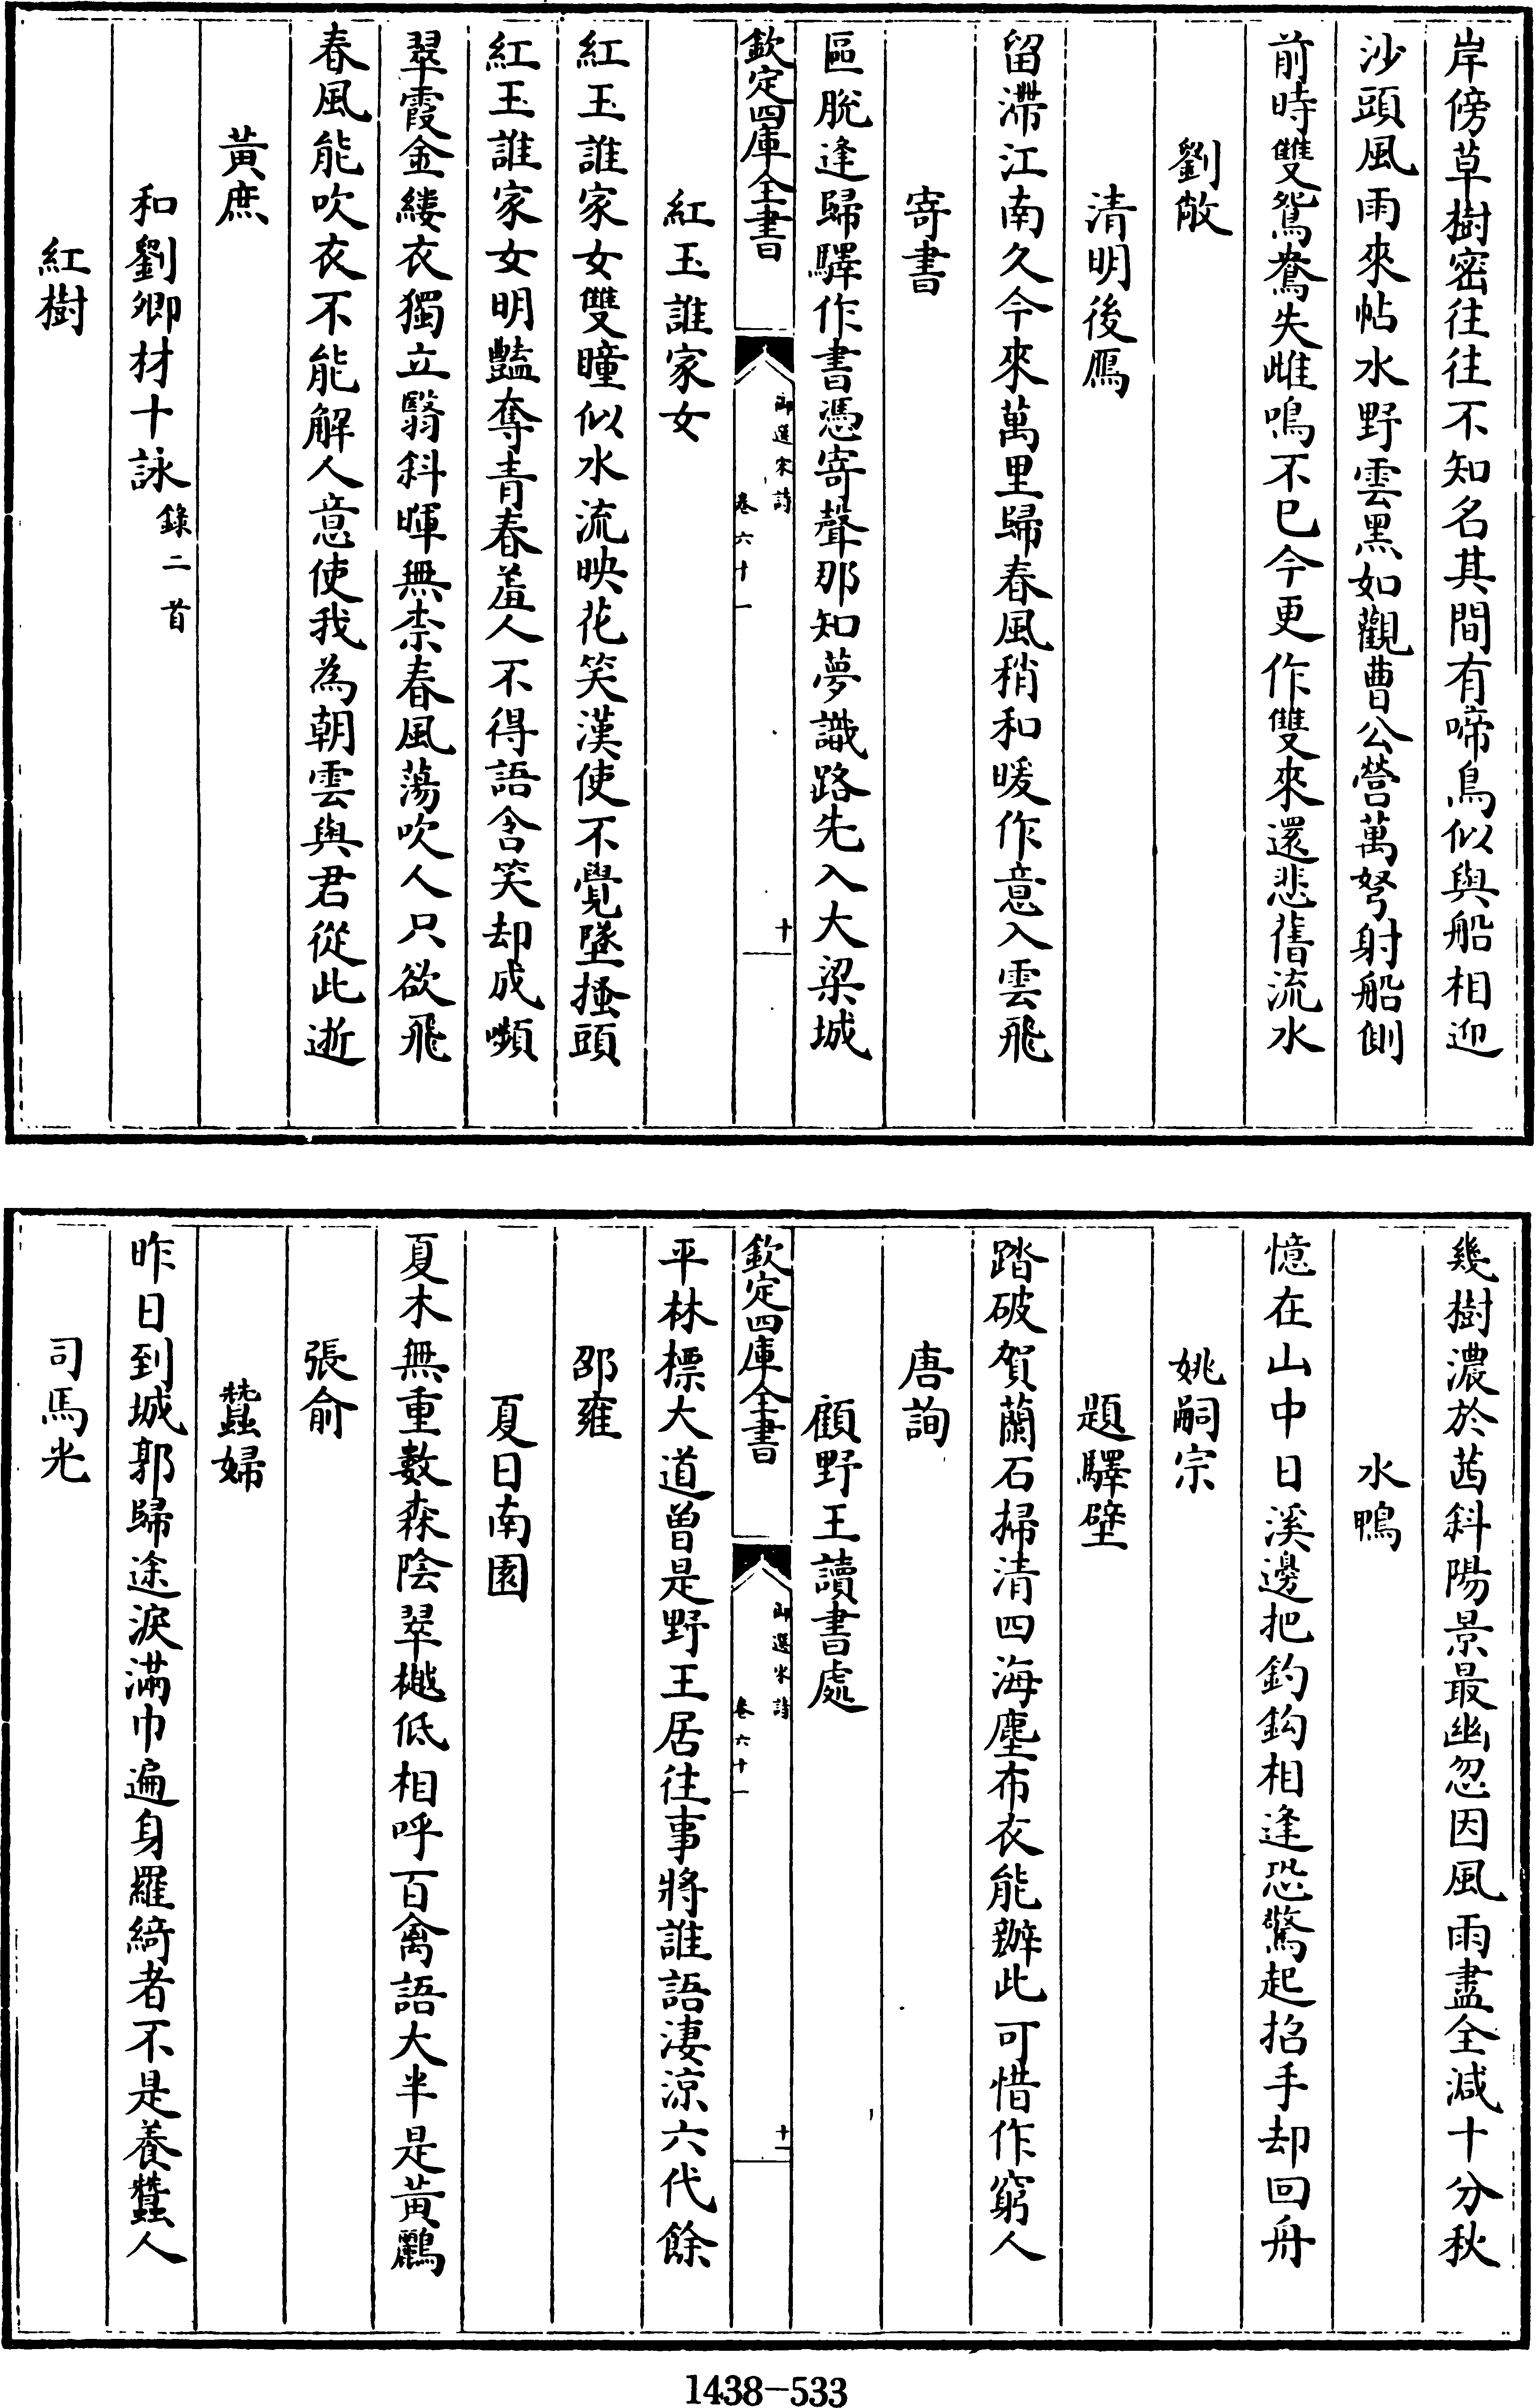 岸傍草樹密往往不知名其間有啼鳥似與船相迎
沙頭風雨來帖水野雲黑如觀曹公營萬弩射船側
前時雙鴛鴦失雌鳴不已今更作雙來還悲舊流水
劉敞
清明後鴈
留滯江南久今來萬里歸春風稍和暖作意入雲飛
寄書
區脫逢歸驛作書憑寄聲那知夢識路先入大梁城
欽定四庫全書
御選宋詩
卷六十一
十
紅玉誰家女
紅玉誰家女雙瞳似水流映花笑漢使不覺墜搔頭
紅玉誰家女明豔奪青春羞人不得語含笑却成嚬
翠霞金縷衣獨立翳斜暉無柰春風蕩吹人只欲飛
春風能吹衣不能解人意使我為朝雲與君從此逝
黃庶
和劉卿材十詠錄二首
紅樹
幾樹濃於茜斜陽景最幽忽因風雨盡全減十分秋
水鴨
憶在山中日溪邊把釣鈎相逢恐驚起招手却回舟
姚嗣宗
題驛壁
踏破賀蘭石掃清四海塵布衣能辦此可惜作窮人
唐詢
顧野王讀書處
欽定四庫全書
御選宋詩
卷六十一
十一
平林標大道曾是野王居往事將誰語淒涼六代餘
邵雍
夏日南園
夏木無重數森陰翠樾低相呼百禽語大半是黃鸝
張俞
蠶婦
昨日到城郭歸途淚滿巾遍身羅綺者不是養蠶人
司馬光
1438-533